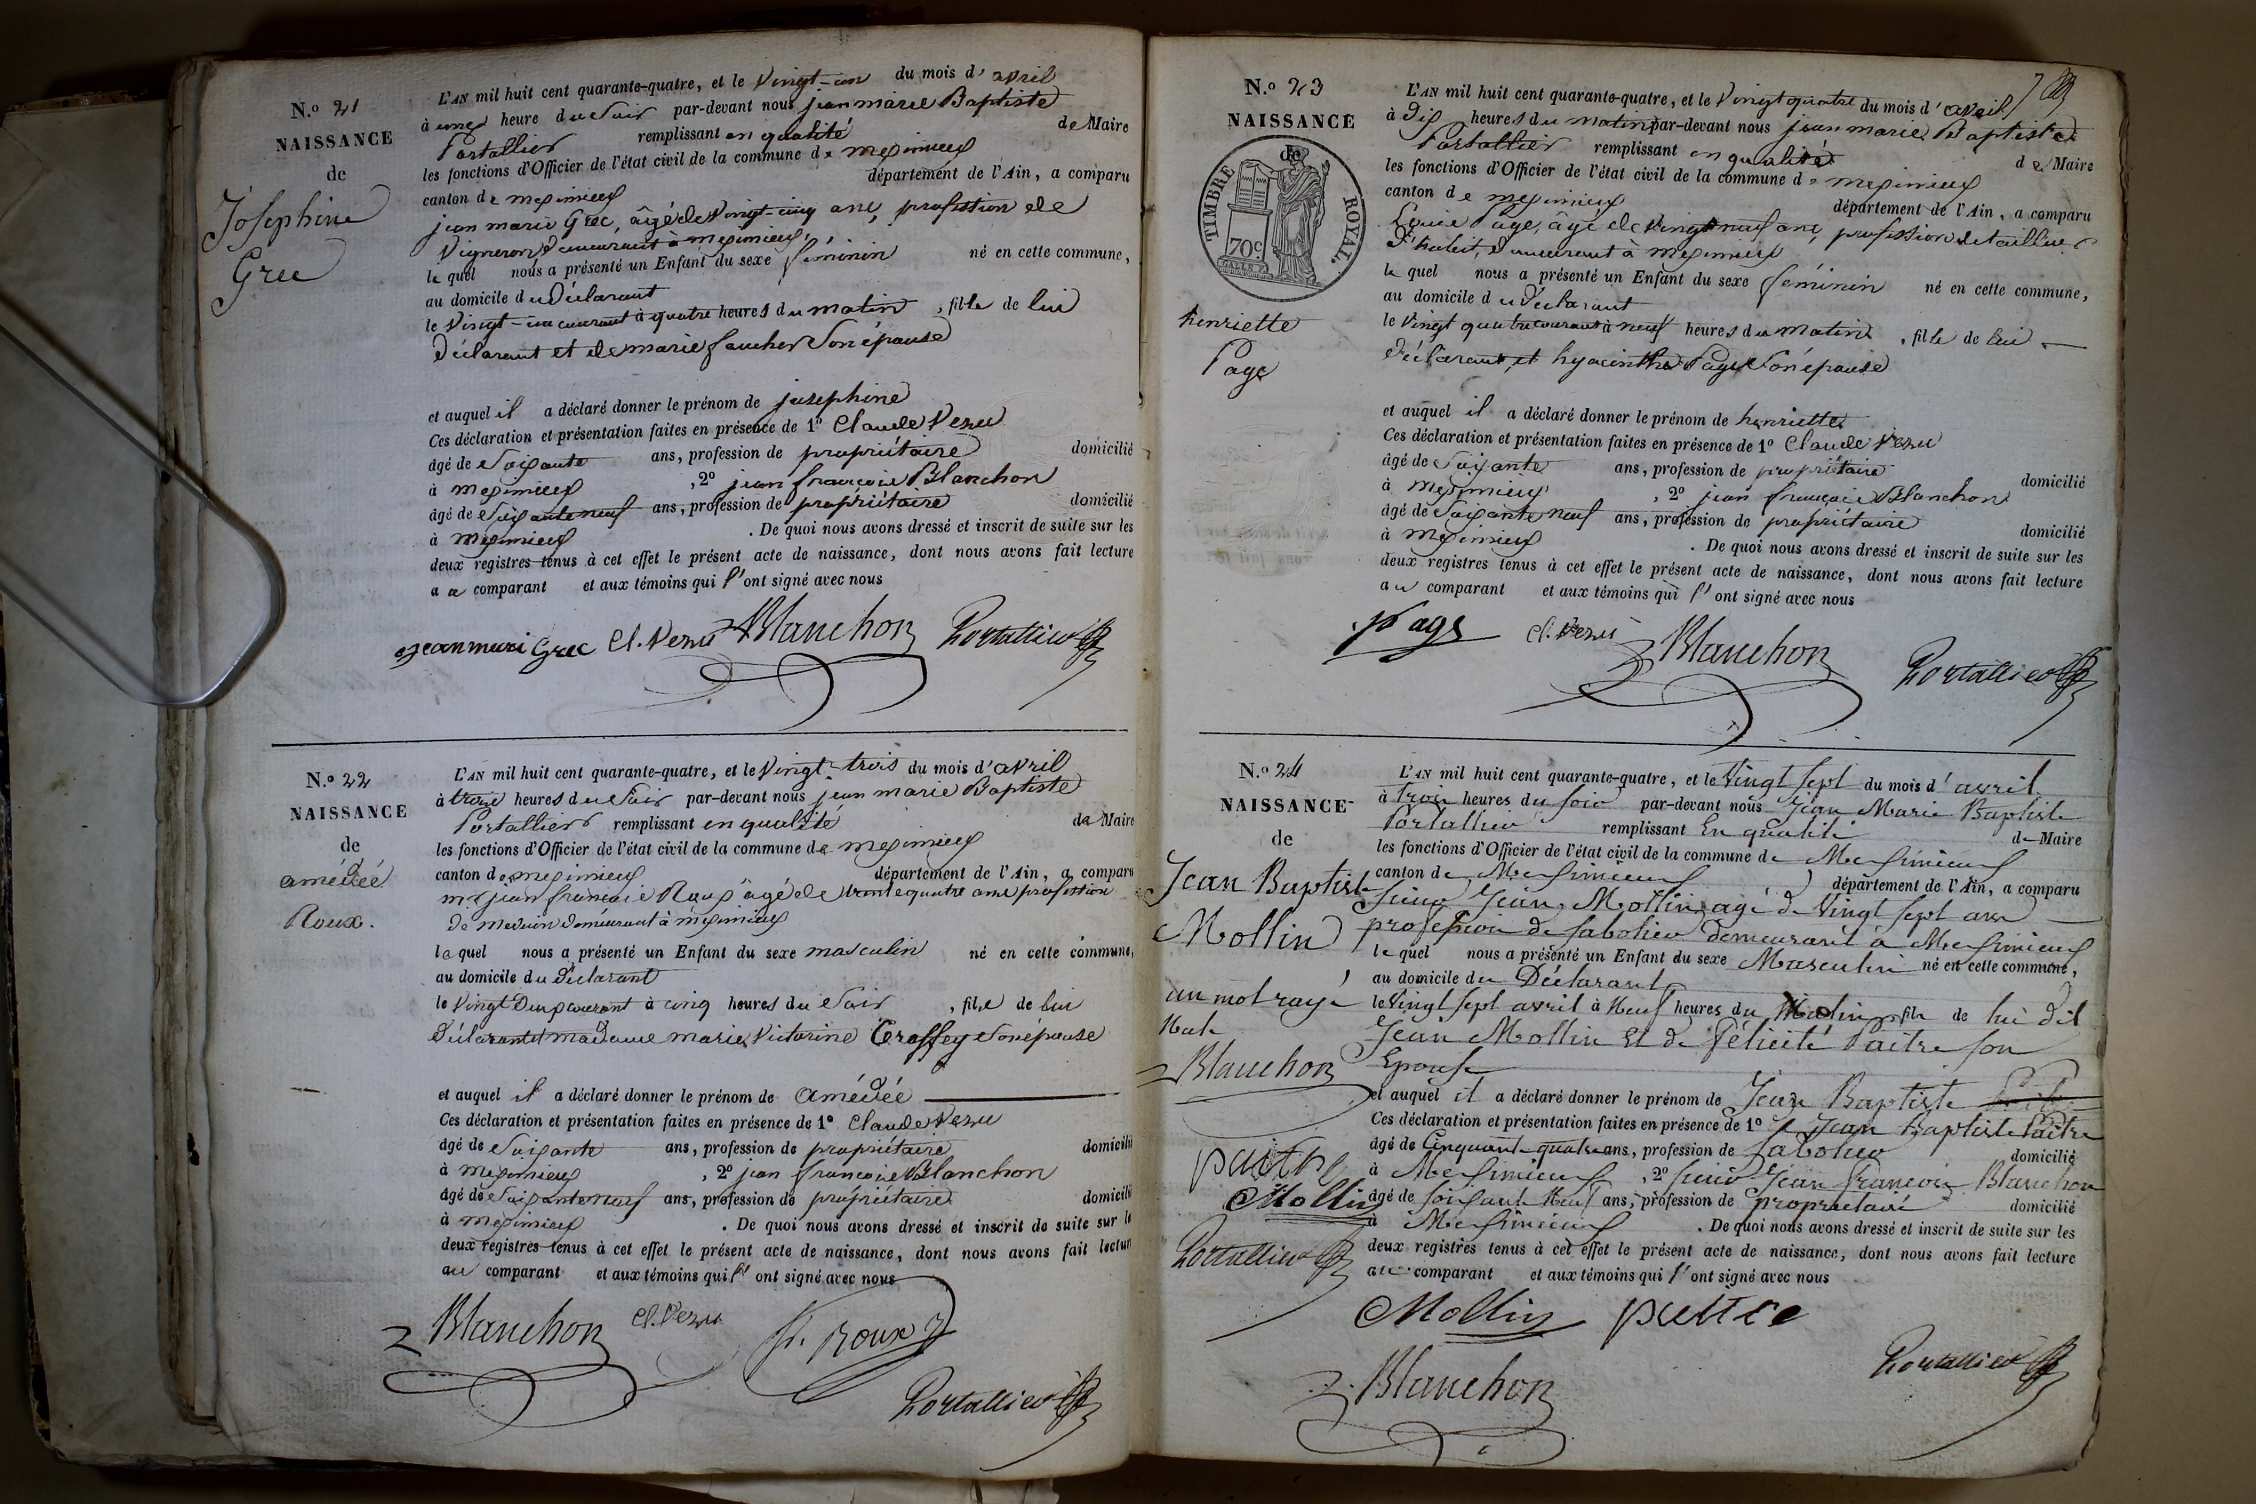 N.o 21
NAISSANCE
de
Josephine
Grec
L'AN mil huit cent quarante-quatre, et le Vingt-un du mois d'avril
à une heure du Soir par-devant nous jean marie Baptiste
Portallier remplissant en qualité de Maire
les fonctions d'Officier de l'état civil de la commune de meximieux
canton de meximieux département de l'Ain, a comparu
jean marie Grec, âgé de Vingt-cinq ans, profession de
Vigneron demeurant à meximieux,
le quel nous a présenté un Enfant du sexe féminin né en cette commune,
au domicile du Déclarant
le Vingt-un courant à quatre heures du matin, fille de lui
Déclarant et de marie faucher Son épouse
et auquel il a déclaré donner le prénom de josephine
Ces déclaration et présentation faites en présence de 1o Claude Venu
âgé de Soixante ans, profession de propriétaire domicilié
à meximieux, 2o jean françois Blanchon
âgé de Soixante neuf ans, profession de propriétaire domicilié
à meximieux. De quoi nous avons dressé et inscrit de suite sur les
deux registres tenus à cet effet le présent acte de naissance, dont nous avons fait lecture
au comparant et aux témoins qui l'ont signé avec nous
jean mari Grec Cl. Venu Blanchon Portallier
N.o 22
NAISSANCE
de
amédée
Roux.
L'AN mil huit cent quarante-quatre, et le Vingt-trois du mois d'avril
à trois heures du Soir par-devant nous jean marie Baptiste
Portallier remplissant en qualité de Maire
les fonctions d'Officier de l'état civil de la commune de meximieux
canton de meximieux département de l'Ain, a comparu
mr jean françois Roux âgé de trente quatre ans profession
de medecin demeurant à meximieux
le quel nous a présenté un Enfant du sexe masculin né en cette commune,
au domicile du Déclarant
le Vingt Deux courant à cinq heures du Soir, fils de lui
Déclarant et madame marie Victorine Troffey Son épouse
et auquel il a déclaré donner le prénom de amédée
Ces déclaration et présentation faites en présence de 1o Claude Venu
âgé de Soixante ans, profession de propriétaire domicilié
à meximieux, 2o jean françois Blanchon
âgé de Soixante neuf ans, profession de propriétaire domicilié
à meximieux. De quoi nous avons dressé et inscrit de suite sur les
deux registres tenus à cet effet le présent acte de naissance, dont nous avons fait lecture
au comparant et aux témoins qui l'ont signé avec nous
Blanchon Cl. Venu Roux
Portallier
N.o 23
NAISSANCE
de
TIMBRE ROYAL.
70 c.
henriette
Page
L'AN mil huit cent quarante-quatre, et le Vingt quatre du mois d'avril
à Dix heures du matin par-devant nous jean marie Baptiste
Portallier remplissant en qualité de Maire
les fonctions d'Officier de l'état civil de la commune de meximieux
canton de meximieux département de l'Ain, a comparu
Louis Page, âgé de Vingt neuf ans, profession de tailleur
D'habit, Demeurant à meximieux
le quel nous a présenté un Enfant du sexe féminin né en cette commune,
au domicile du Déclarant
le Vingt quatre courant à neuf heures du matin, fille de lui
Déclarant, et hyacinthe Page Son épouse
et auquel il a déclaré donner le prénom de henriette
Ces déclaration et présentation faites en présence de 1o Claude Venu
âgé de Soixante ans, profession de propriétaire domicilié
à meximieux, 2o jean françois Blanchon
âgé de Soixante neuf ans, profession de propriétaire domicilié
à meximieux. De quoi nous avons dressé et inscrit de suite sur les
deux registres tenus à cet effet le présent acte de naissance, dont nous avons fait lecture
au comparant et aux témoins qui l'ont signé avec nous
Page Cl. Venu Blanchon Portallier
N.o 24
NAISSANCE
de
Jean Baptiste
Mollin
un mot rayé
Nul
Blanchon
paitre
Mollin
Portallier
L'AN mil huit cent quarante-quatre, et le Vingt Sept du mois d'avril
à Trois heures du Soir par-devant nous Jean Marie Baptiste
Portallier remplissant En qualité de Maire
les fonctions d'Officier de l'état civil de la commune de Meximieux
canton de Meximieux département de l'Ain, a comparu
Sieur Jean Mollin, agé de Vingt Sept ans
profession de Sabotier demeurant à Meximieux
le quel nous a présenté un Enfant du sexe Masculin né en cette commune,
au domicile du Déclarant
le Vingt Sept avril à Neuf heures du Matin, fils de lui dit
Jean Mollin Et de Félicité Paitre Son
Epouse
et auquel il a déclaré donner le prénom de Jean Baptiste
Ces déclaration et présentation faites en présence de 1o Sr Jean Baptiste Paitre
âgé de Cinquante quatre ans, profession de Sabotier domicilié
à Meximieux, 2o Sieur Jean Francois Blanchon
âgé de Soixante Neuf ans, profession de propriétaire domicilié
à Meximieux. De quoi nous avons dressé et inscrit de suite sur les
deux registres tenus à cet effet le présent acte de naissance, dont nous avons fait lecture
au comparant et aux témoins qui l'ont signé avec nous
Mollin paitre
Portallier
Blanchon